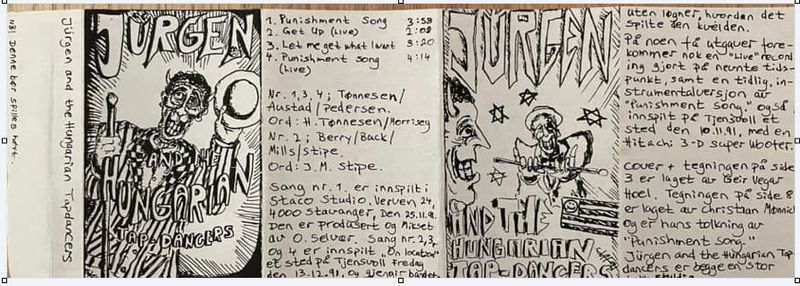 NB! Denne bør spilles høyt.
Jürgen and the Hungarian Tapdancers
JÜRGEN
AND THE
HUNGARIAN
TAP-DANCERS
1. Punishment Song 3:58
2. Get Up (Live)
3. Let me get what I want 3:20
4. Punishment song 4:14
(Live)
Nr. 1,3,4; Tønnesen/
Austad/Pedersen.
Ord: H. Tønnesen/Morrisey
Nr. 2; Berry/Buck/
Mills/Stipe.
Ord: J.M. Stipe.
Sang nr. 1. er innspilt i
Staco Studio. Verven 24,
4000 Stavanger, Den 25.11.91.
Den er produsert og mikset
av O. Selvær. Sang nr. 2,3,
og 4 er innspilt „On location"
et sted på Tjensvoll Fredag
den 13.12.91, og
JÜRGEN
AND THE
HUNGARIAN
TAP-DANCERS
uten løgner, hvordan det
spilte den kvelden.
På noen få utgaver fore-
kommer nok en "Live" record
ing gjort på nevnte tids-
punkt, samt en tidlig, in-
strumentalversjon av
"Punishment song." også
innspilt på Tjensvoll et
sted den 10.11.91, med en
Hitachi 3-D super Woofer.
Cover + tegningen på side
3 er laget av Geir Vegar
Hoel. Tegningen på side 8
er laget av Christian
og er hans tolkning av
"Punishment Song."
Jürgen and the Hungarian Tap
dancers er begge en stor